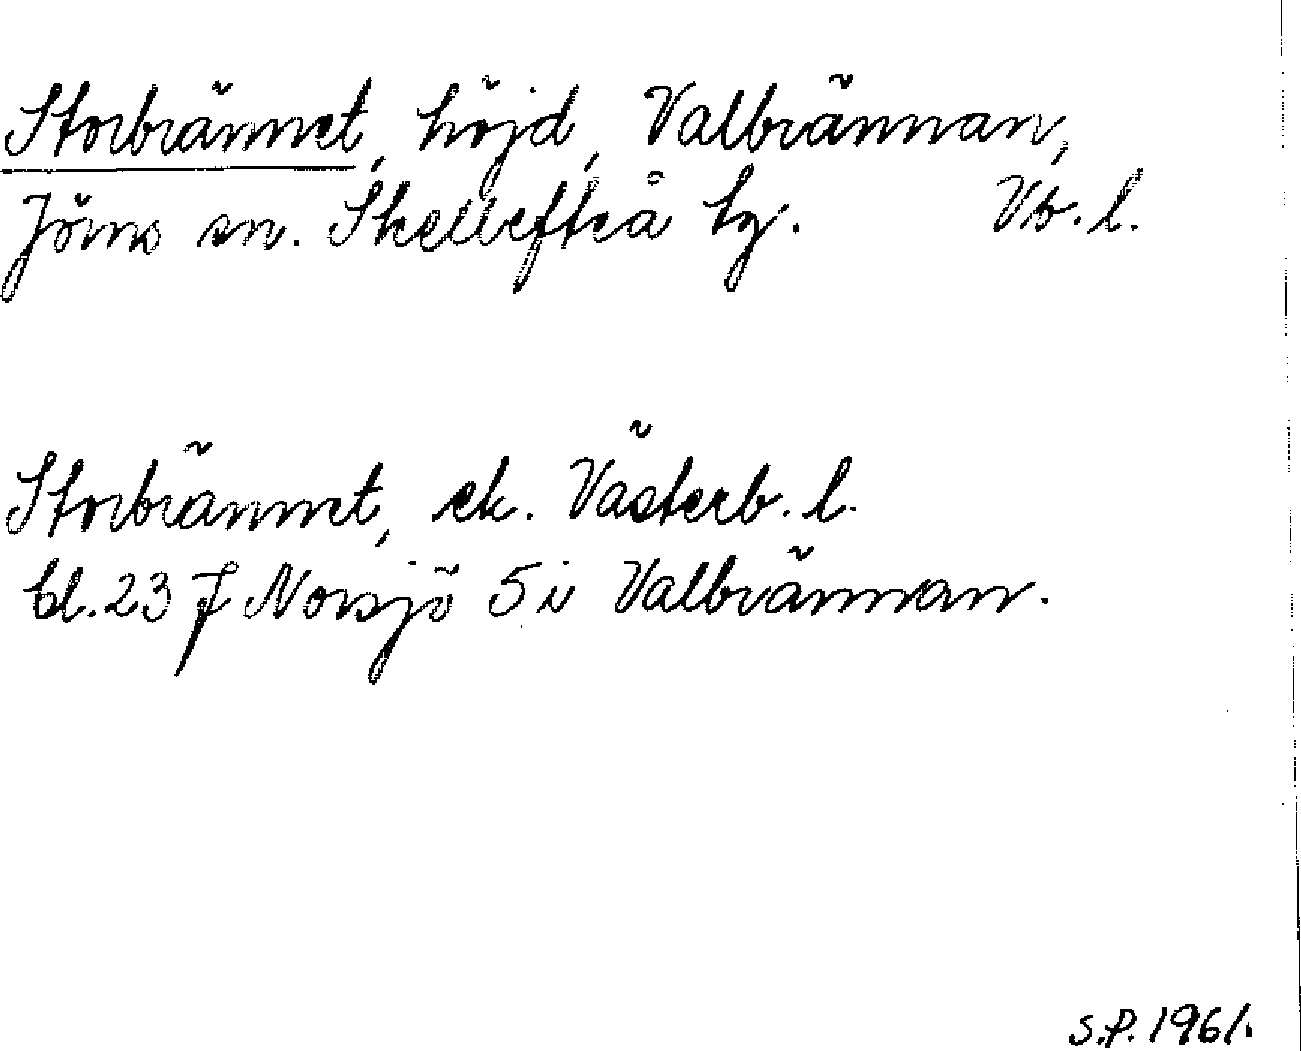 Storbrännet, höjd, Valbrännan,
Jörns sn. Skellefteå tg. Vb. l.
Storbrännet, ek. Västerb. l.
bl. 23 J Norsjö 5 i Valbrännan.
S.P. 1961.